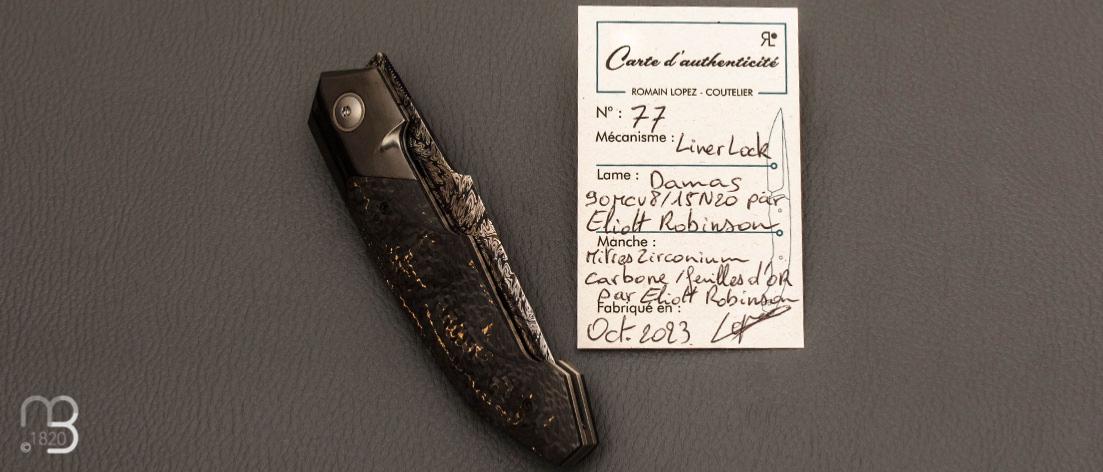 RL
Carte d'authenticité
ROMAIN LOPEZ - COUTELIER
N° : 77
Mécanisme : LinerLock
Lame : Damas
90MCV8/15N20 par
Eliott Robinson
Manche :
Mitres Zirconium
Carbone/feuilles d'OR
par Eliott Robinson
Fabriqué en :
Oct. 2023
MB
©1820